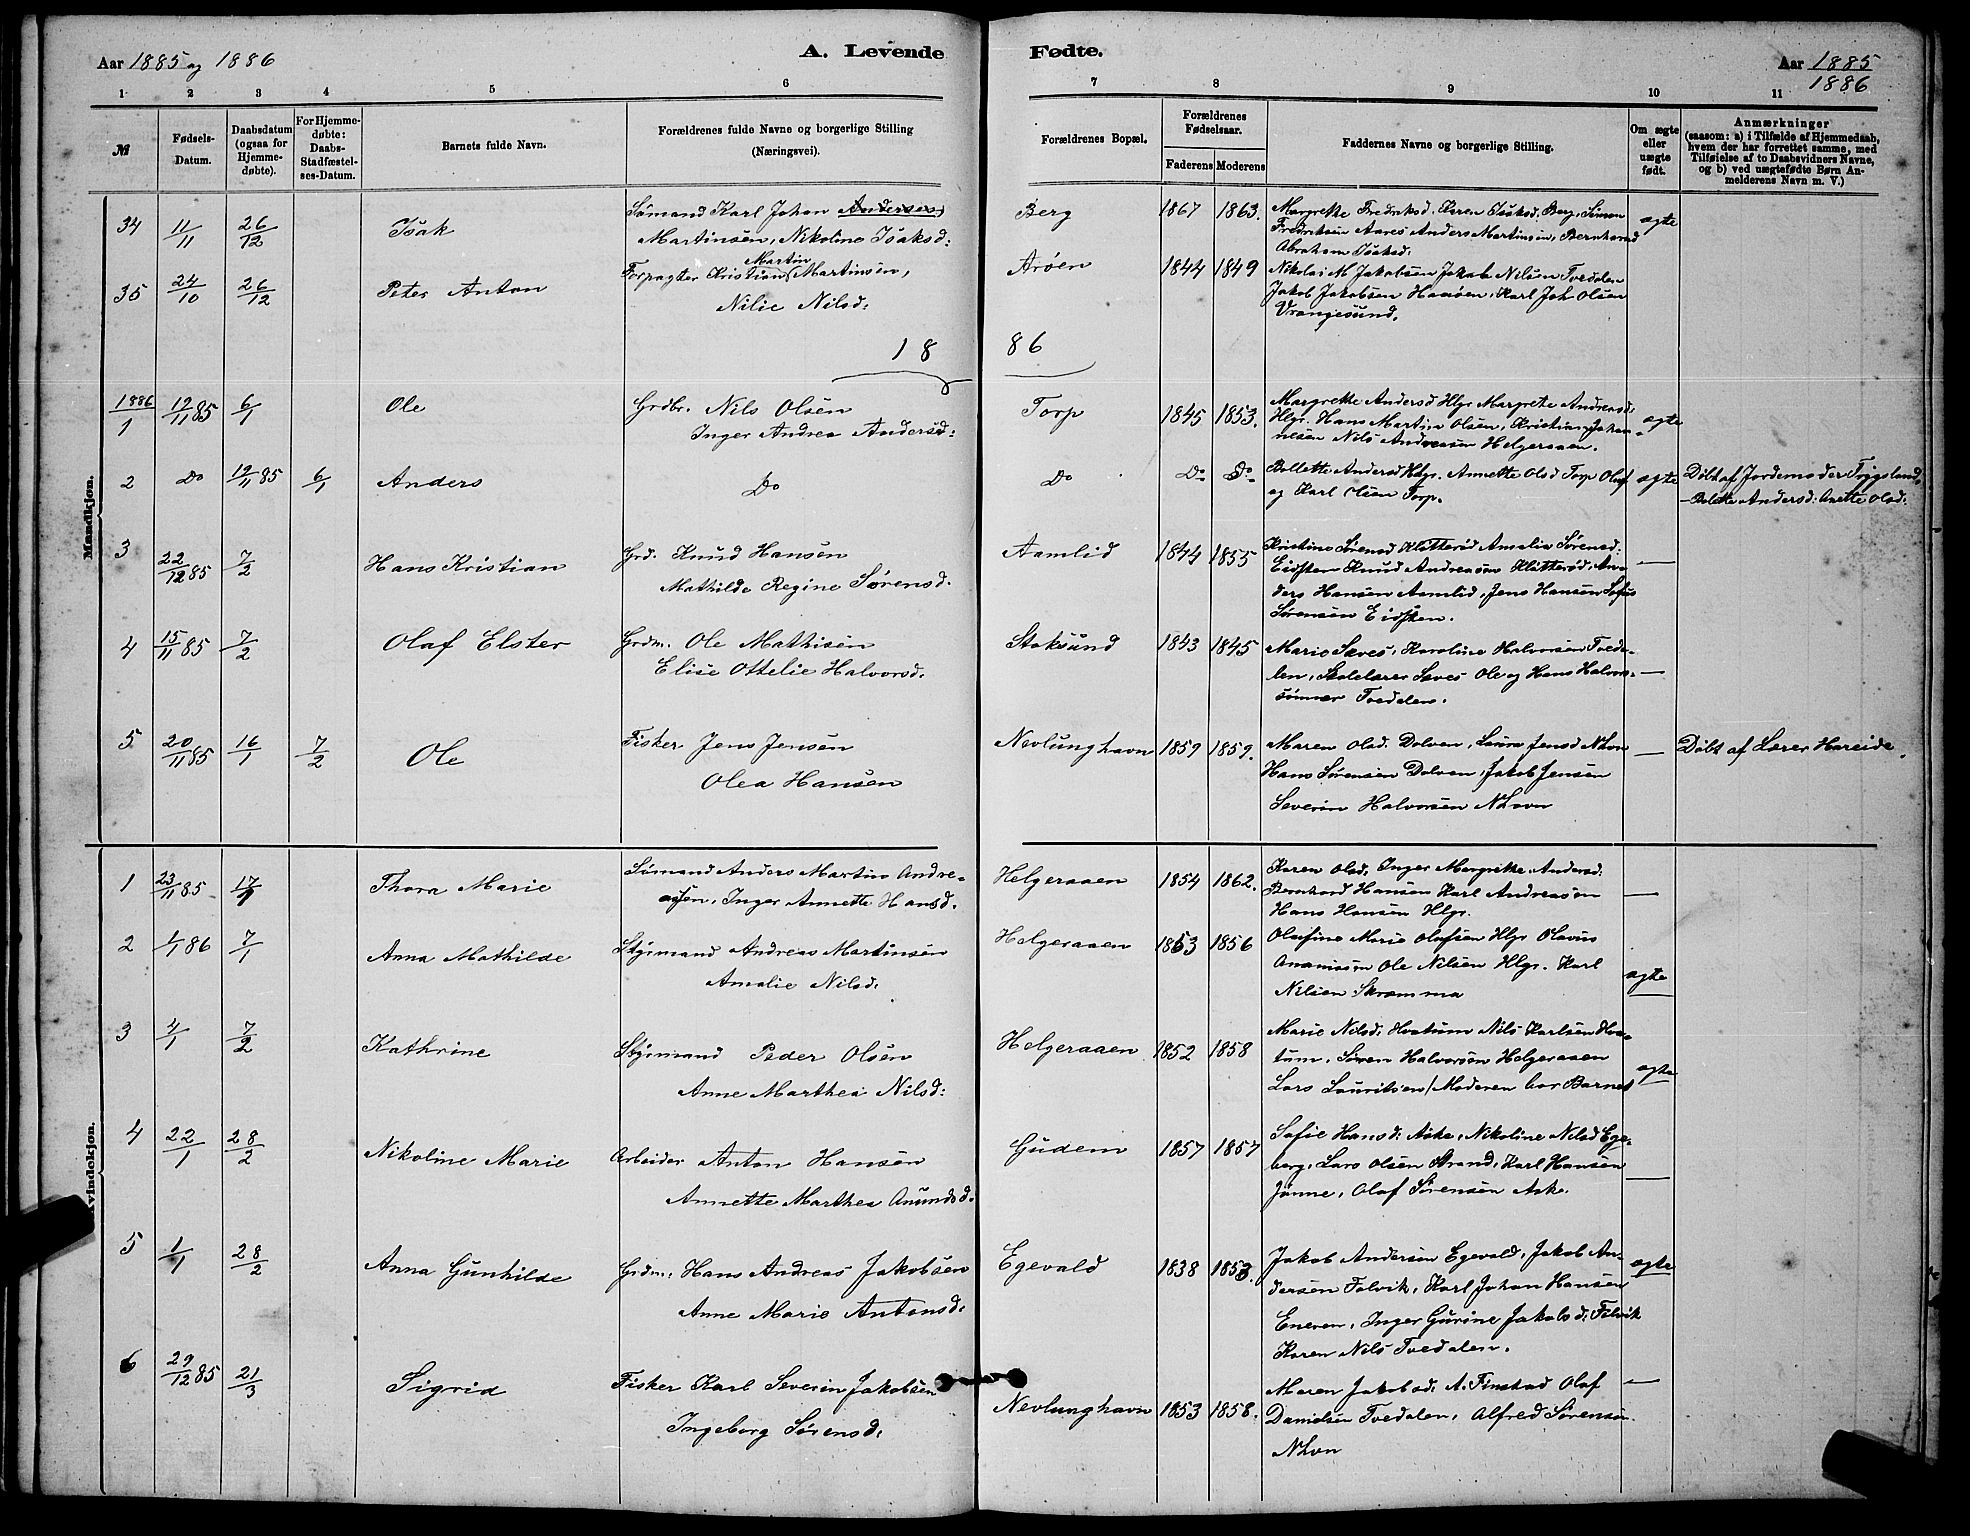 Aar 1885 og 1886
A. Levende
Fødte.
Aar 1885
1886
1 2 3 4 5 6 7 8 9 10 11
№
Fødsels-
Datum.
Daabsdatum
(ogsaa for
Hjemme-
døbte).
For Hjemme-
døbte:
Daabs-
Stadfæstel-
ses-Datum.
Barnets fulde Navn.
Forældrenes fulde Navne og borgerlige Stilling
(Næringsvei).
Forældrenes Bopæl.
Forældrenes
Fødselsaar.
Faderens Moderens
Faddernes Navne og borgerlige Stilling.
Om ægte
eller
uægte
født.
Anmærkninger
(saasom: a) i Tilfælde af Hjemmedaab,
hvem der har forrettet samme, med
Tilføielse af to Daabsvidners Navne,
og b) ved uægtefødte Børn An-
melderens Navn m. V.)
Mandkjøn.
34 11/11 26/12 Isak
Sømand Karl Johan Andersen
Martinsen, Nikoline Isaksd:
Berg 1867 1863.
Margrethe Fredriksd. Karen Isaksd. Berg, Simon
Fredriksen Aares Anders Martinsen, Bernhard
Abraham Isaksd.
ægte
35 24/10 26/12 Peter Anton
Martin
Forpagter Kristian Martinsen,
Nilie Nilsd:
Arøen 1844 1849
Nikolai M Jakobsen Jakob Nilsen Tvedalen
Jakob Jakobsen Hamøen, Karl Joh Olsen
Vrangesund.
18 86
1886
1 12/11 85 6/1 Ole
Grdbr. Nils Olsen
Inger Andrea Andersd:
Torp 1845 1853.
Margrethe Andersd Hlgr Margrete Andreasd:
Hlgr. Hans Martin Olsen, Kristian Johan-
nesen Nils Andreasen Helgeraaen.
ægte
2 Do 12/11 85 6/1 Anders
Do
Do Do Do
Bollette Andersd Hlgr. Annette Olsd Torp Oluf
og Karl Olsen Torp.
ægte
Døbt af Jordemoder Trygsland,
Bolette Andersd: Anette Olsd:
3 22/12 85 7/2 Hans Kristian
Grd. Knud Hansen
Mathilde Regine Sørensd.
Aamlid 1844 1855
Kristine Sørensd Klitterød Amalie Sørensd:
Eidsten Knud Andreasen Klitterød, An-
ders Hansen Aamlid, Jens Hansen Sofus
Sørensen Eidsten.
—
4 15/11 85 7/2 Olaf Elster
Grdm. Ole Mathisen
Elise Ottelie Halvorsd.
Stoksund 1843 1845
Marie Saves, Karoline Halvorsen Tveda-
len, Skolelærer Saves Ole og Hans Halvor-
sønner Tvedalen.
—
5 20/11 85 16/1 7/2 Ole
Fisker Jens Jensen
Olea Hansen
Nevlunghavn 1859 1859.
Maren Olsd. Dolven, Laura Jensd NHvn
Hans Sørensen Dolven, Jakob Jensen
Severin Halvorsen NHavn
—
Døbt af Lærer Hareide.
Kvindekjøn.
1 23/11 85 17/1 Thora Marie
Sømand Anders Martin Andre-
asen, Inger Annette Hansd.
Helgeraaen 1854 1862.
Karen Olsd, Inger Margrethe Andersd.
Bernhard Hansen Karl Andreasen
Hans Hansen Hlgr.
—
2 1/1 86 7/1 Anna Mathilde
Styrmand Andreas Martinsen
Amalie Nilsd.
Helgeraaen 1853 1856
Olufine Marie Olufsen Hlgr Olavus
Ananiassen Ole Nilsen Hlgr. Karl
Nilsen Skramma
ægte
3 4/1 7/2 Kathrine
Styrmand Peder Olsen
Anne Marthea Nilsd:
Helgeraaen 1852 1858
Marie Nilsd: Hvatum Nils Karlsen Hva-
tum, Søren Halvorsen Helgeraaen
Lars Lauritsen / Moderen bar Barnet
ægte
4 22/1 28/2 Nikoline Marie
Arbeider Anton Hansen
Annette Marthea Amundsd.
Gudem 1857 1857
Sofie Hansd: Aske, Nikoline Nilsd Ege-
berg, Lars Olsen Strand, Karl Hansen
Jønne, Olaf Sørensen Aske.
—
5 1/1 28/2 Anna Gunhilde
Grdm: Hans Andreas Jakobsen
Anne Marie Antonsd.
Egevald 1838 1853.
Jakob Andersen Egevald, Jakob An-
dersen Falvik, Karl Johan Hansen
Eneren, Inger Gurine Jakobsd: Falvik
Karen Nils Tvedalen.
ægte
6 29/12 85 21/3 Sigrid
Fisker Karl Severin Jakobsen
Ingeborg Sørensd:
Nevlunghavn 1853 1858.
Maren Jakobsd: A. Finstad Olaf
Danielsen Tvedalen, Alfred Sørensen
NHvn
—